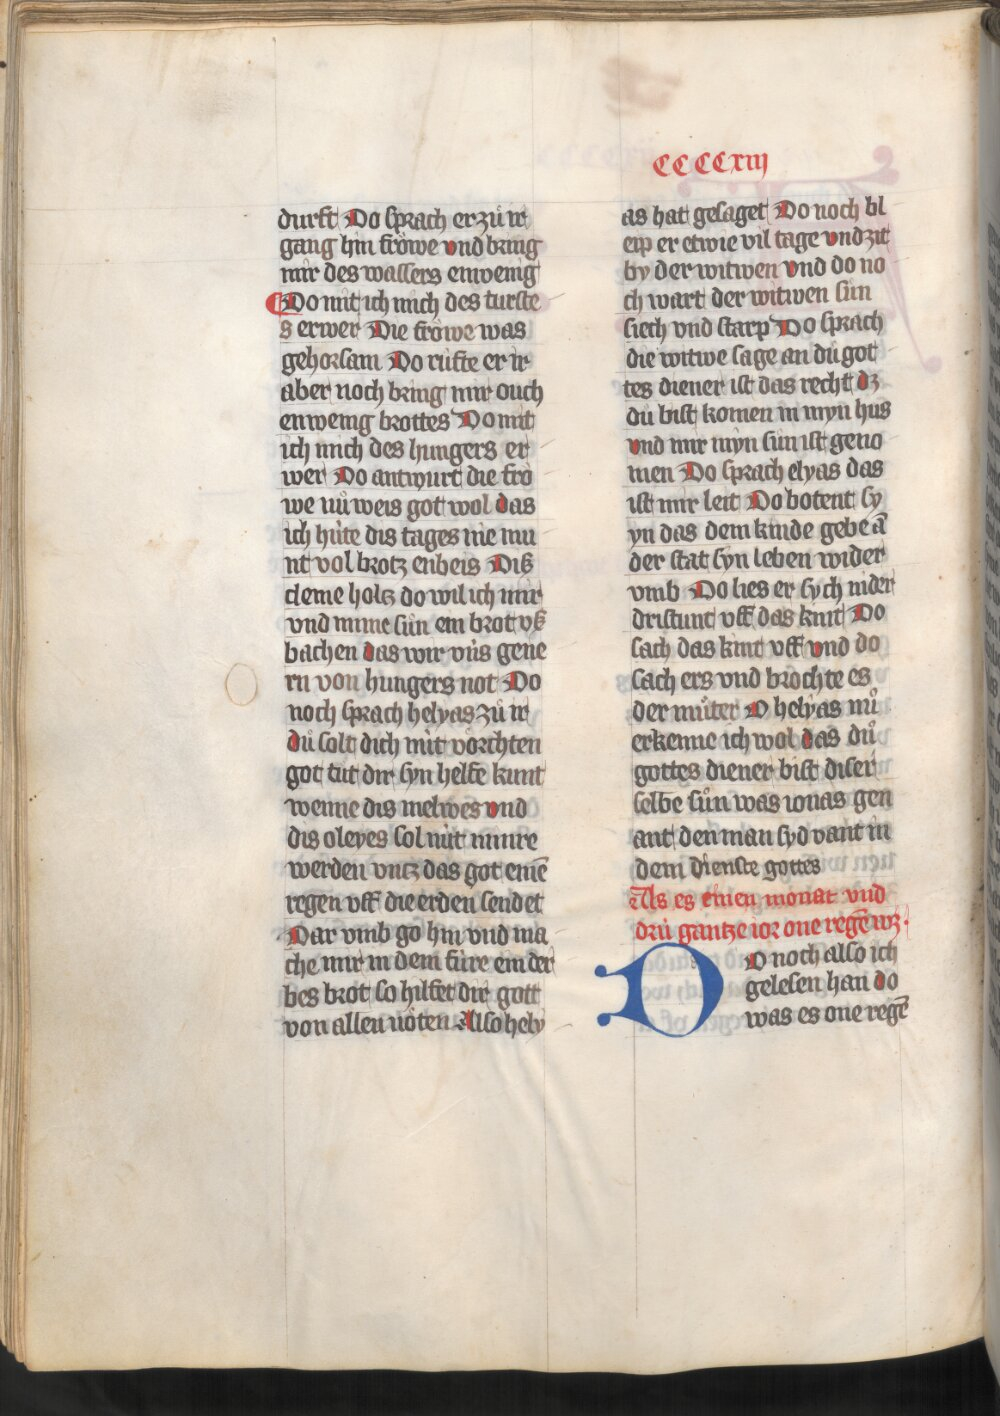 CCCCxiij
durft Do sprach er zů ir
gang hin frowe vnd bring
mir des wassers ein wenig
Do mit ich mich des turste
s erwer Die frowe was
gehorsam Do rufte er ir
aber noch bring mir ouch
ein wenig brottes Do mit
ich mich des hungers er
wer Do antwurt die fro
we nů weis got wol das
ich hute dis tages nie mu
nt vol brotz enbeis Dis
cleine holtz do wil ich mir
vnd mime sun ein brot vß
bachen das wir vns gene
rn von hungers not Do
noch sprach helyas zů ir
du solt dich nüt vörchten
got tut dir syn helfe kunt
wenne dis melwes vnd
dis oleyes sol nüt minre
werden vntz das got eine̅
regen vff die erden sendet
Dar vmb go hin vnd ma
che mir in dem füre ein der
bes brot so hilfet dir gott
von allen nöten Also hely
as hat gesaget Do noch bl
eip er etwie vil tage vnd zit
by der witwen vnd do no
ch wart der witwen sun
siech vnd starp Do sprach
die witwe sage an du got
tes diener ist das recht dz
du bist komen in myn hus
vnd mir myn sun ist geno
men Do sprach elyas das
ist mir leit Do botent sy
yn das dem kinde gebe a̅
der stat syn leben wider
vmb Do lies er sych nider
dristunt vff das kint Do
sach das kint vff vnd do
sach ers vnd brochte es
der můter O helyas nů
erkenne ich wol das dů
gottes diener bist diser
selbe sůn was ionas gen
ant den man syd vant in
dem dienste gottes
Als es einen monat vnd
drü gantze ior one rege̅ wz
Do noch also ich
gelesen han do
was es one rege̅